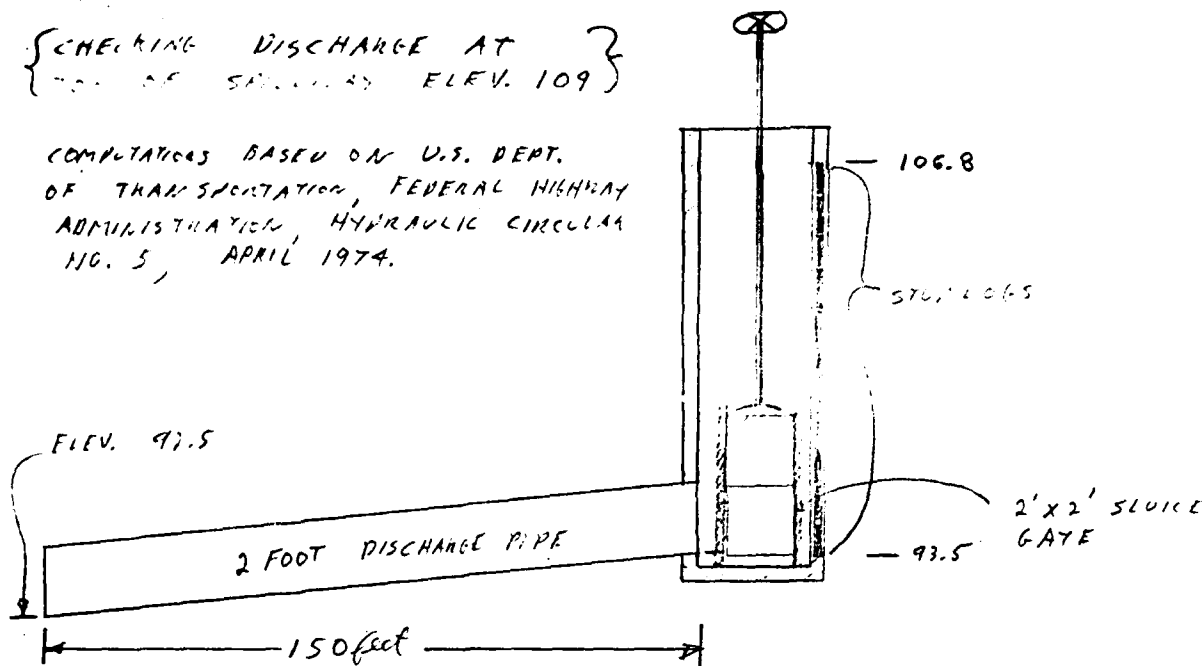 CHECKING DISCHARGE AT
OF ELEV. 109
COMPUTATIONS BASED ON U.S. DEPT.
OF TRANSPORTATION, FEDERAL HIGHWAY
ADMINISTRATION, HYDRAULIC CIRCULAR
NO. 5, APRIL 1974.
106.8
STOP LOGS
ELEV.
2' X 2' SLUICE
GATE
2 FOOT DISCHARGE PIPE
93.5
150 feet